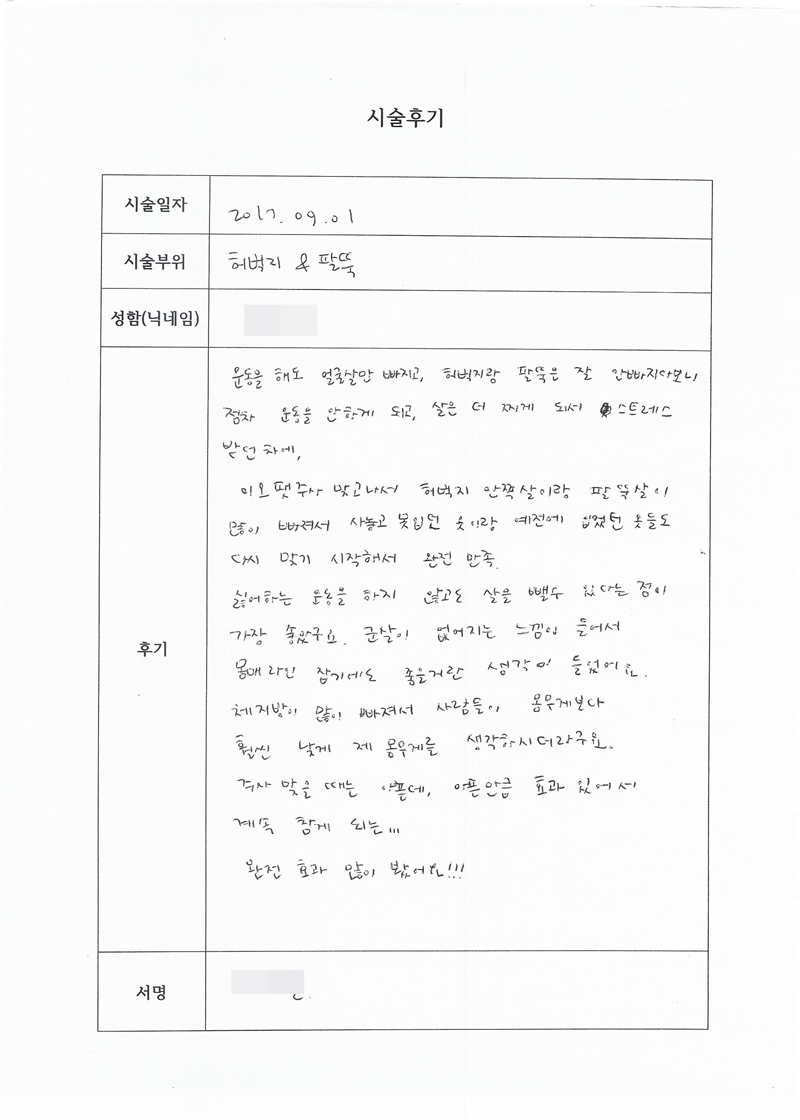 시술후기
시술일자
2017. 09. 01
시술부위
허벅지 & 팔뚝
성함(닉네임)
후기
운동을 해도 얼굴살만 빠지고, 허벅지랑 팔뚝은 잘 안빠지다보니
점차 운동을 안하게 되고, 살은 더 찌게 되서 스트레스
받던 차에,
미오팻주사 맞고나서 허벅지 안쪽살이랑 팔뚝살이
많이 빠져서 사놓고 못입던 옷이랑 예전에 입었던 옷들도
다시 맞기 시작해서 완전 만족.
싫어하는 운동을 하지 않고도 살을 뺄수 있다는 점이
가장 좋았구요. 군살이 없어지는 느낌이 들어서
몸매 라인 잡기에도 좋을거란 생각이 들었어요.
체지방이 많이 빠져서 사람들이 몸무게보다
훨씬 낮게 제 몸무게를 생각하시더라구요.
주사 맞을 때는 아픈데, 아픈만큼 효과 있어서
계속 참게 되는...
완전 효과 많이 봤어요!!!
서명